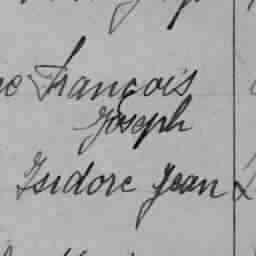 François
Joseph
Isidore Jean